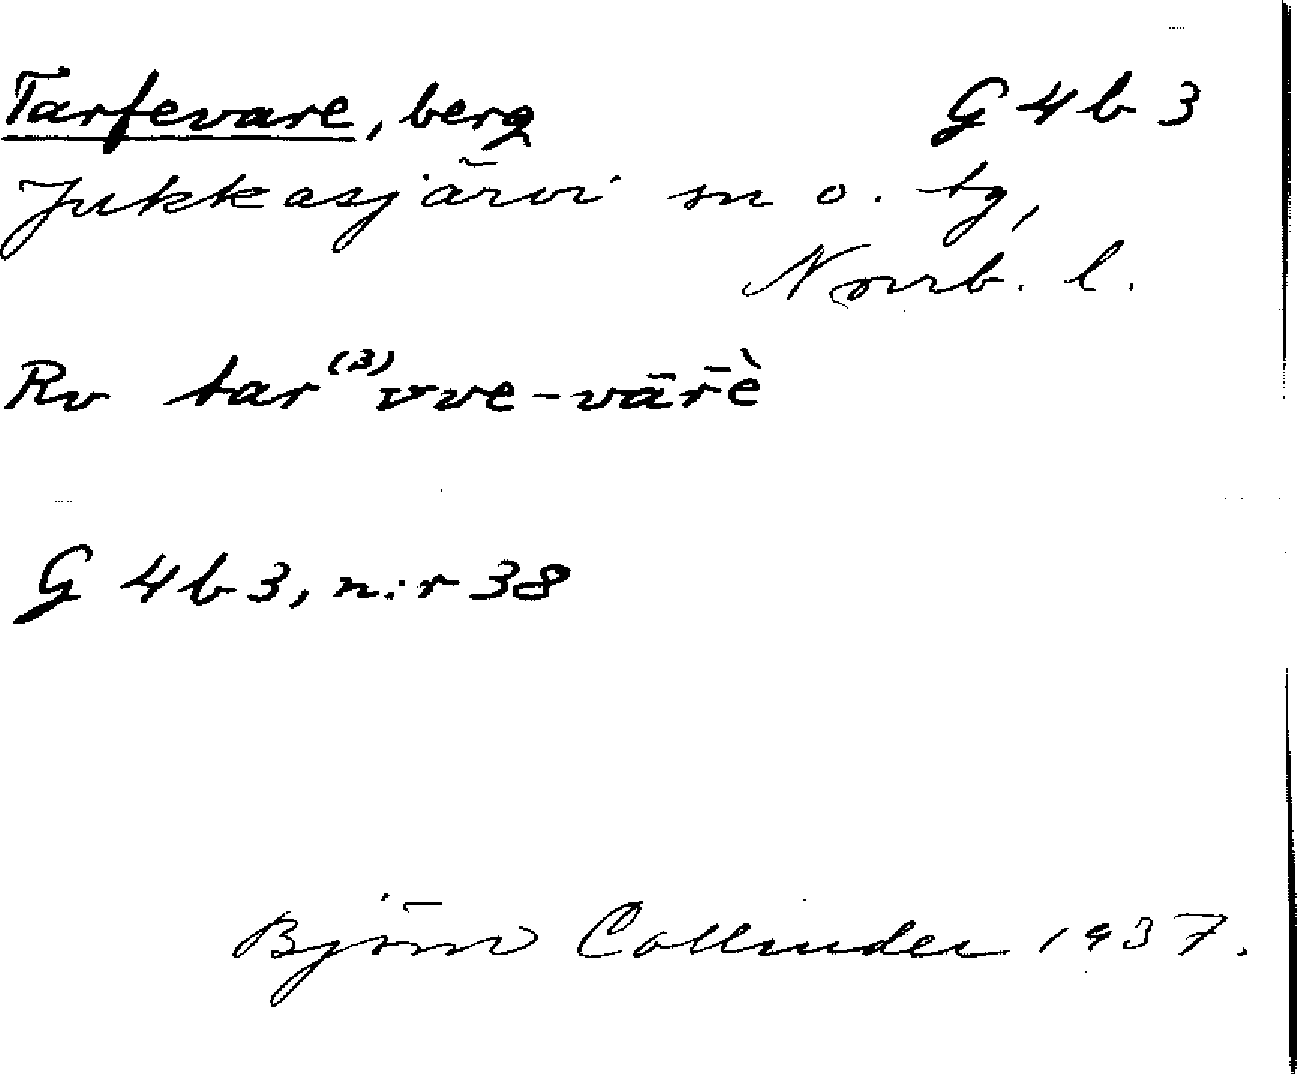 Tarfevare, berg G 4 b 3
Jukkasjärvi sn o. tg,
Norrb. l.
Rv tar⁽³⁾vve-vārè
G 4 b 3, n:r 38
Björn Collinder 1937.